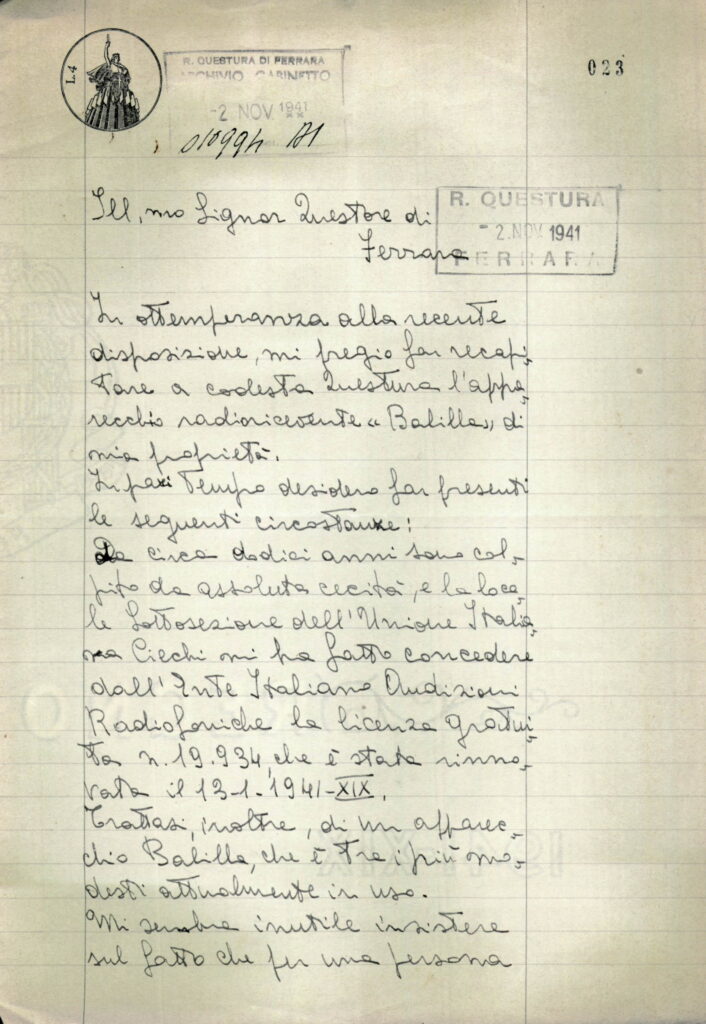 L.4
R. QUESTURA DI FERRARA
ARCHIVIO GABINETTO
-2 NOV 1941
XX
010994 A1
023
Ill,mo Signor Questore di
Ferrara
R. QUESTURA
-2. NOV 1941
FERRARA
In ottemperanza alla recente
disposizione, mi pregio far recapi-
tare a codesta Questura l'appa-
recchio radioricevente "Balilla" di
mia proprietà.
In pari tempo desidero far presenti
le seguenti circostanze:
Da circa dodici anni sono col-
pito da assoluta cecità, e la loca-
le Sottosezione dell'Unione Italia-
na Ciechi mi ha fatto concedere
dall'Ente Italiano Audizioni
Radiofoniche la licenza gratui-
ta n. 19.934, che è stata rinno-
vata il 13-1-1941-XIX.
Trattasi, inoltre, di un apparec-
chio Balilla, che è tra i più mo-
desti attualmente in uso.
Mi sembra inutile insistere
sul fatto che per una persona